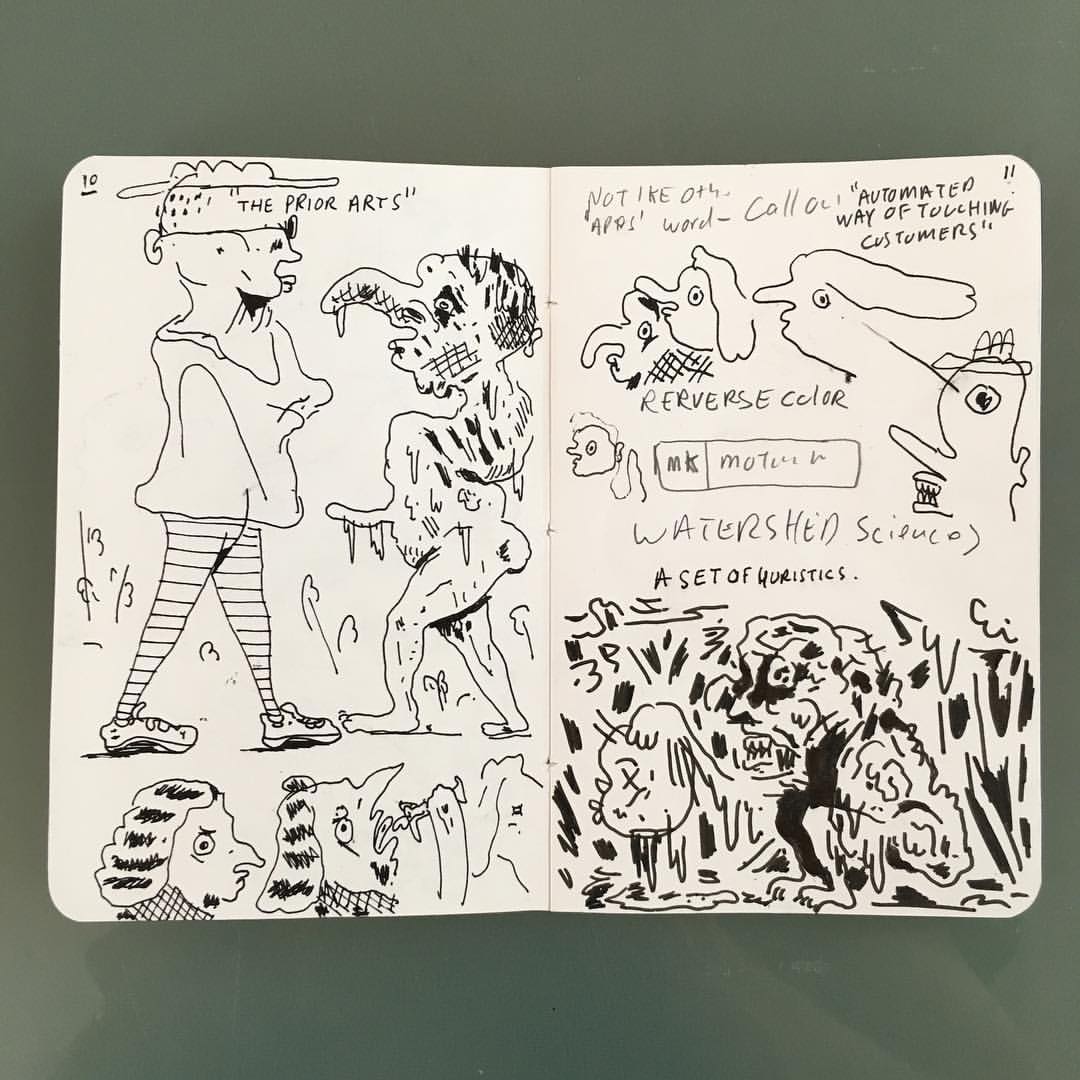 10
"THE PRIOR ARTS"
11
NOT lKE Oth
'APPS' word- Call ou
"AUTOMATED
WAY OF TOUCHING
CUSTOMERS"
RERVERSE COLOR
MK
WATERSHED Sciences
A SET OF HURISTICS.